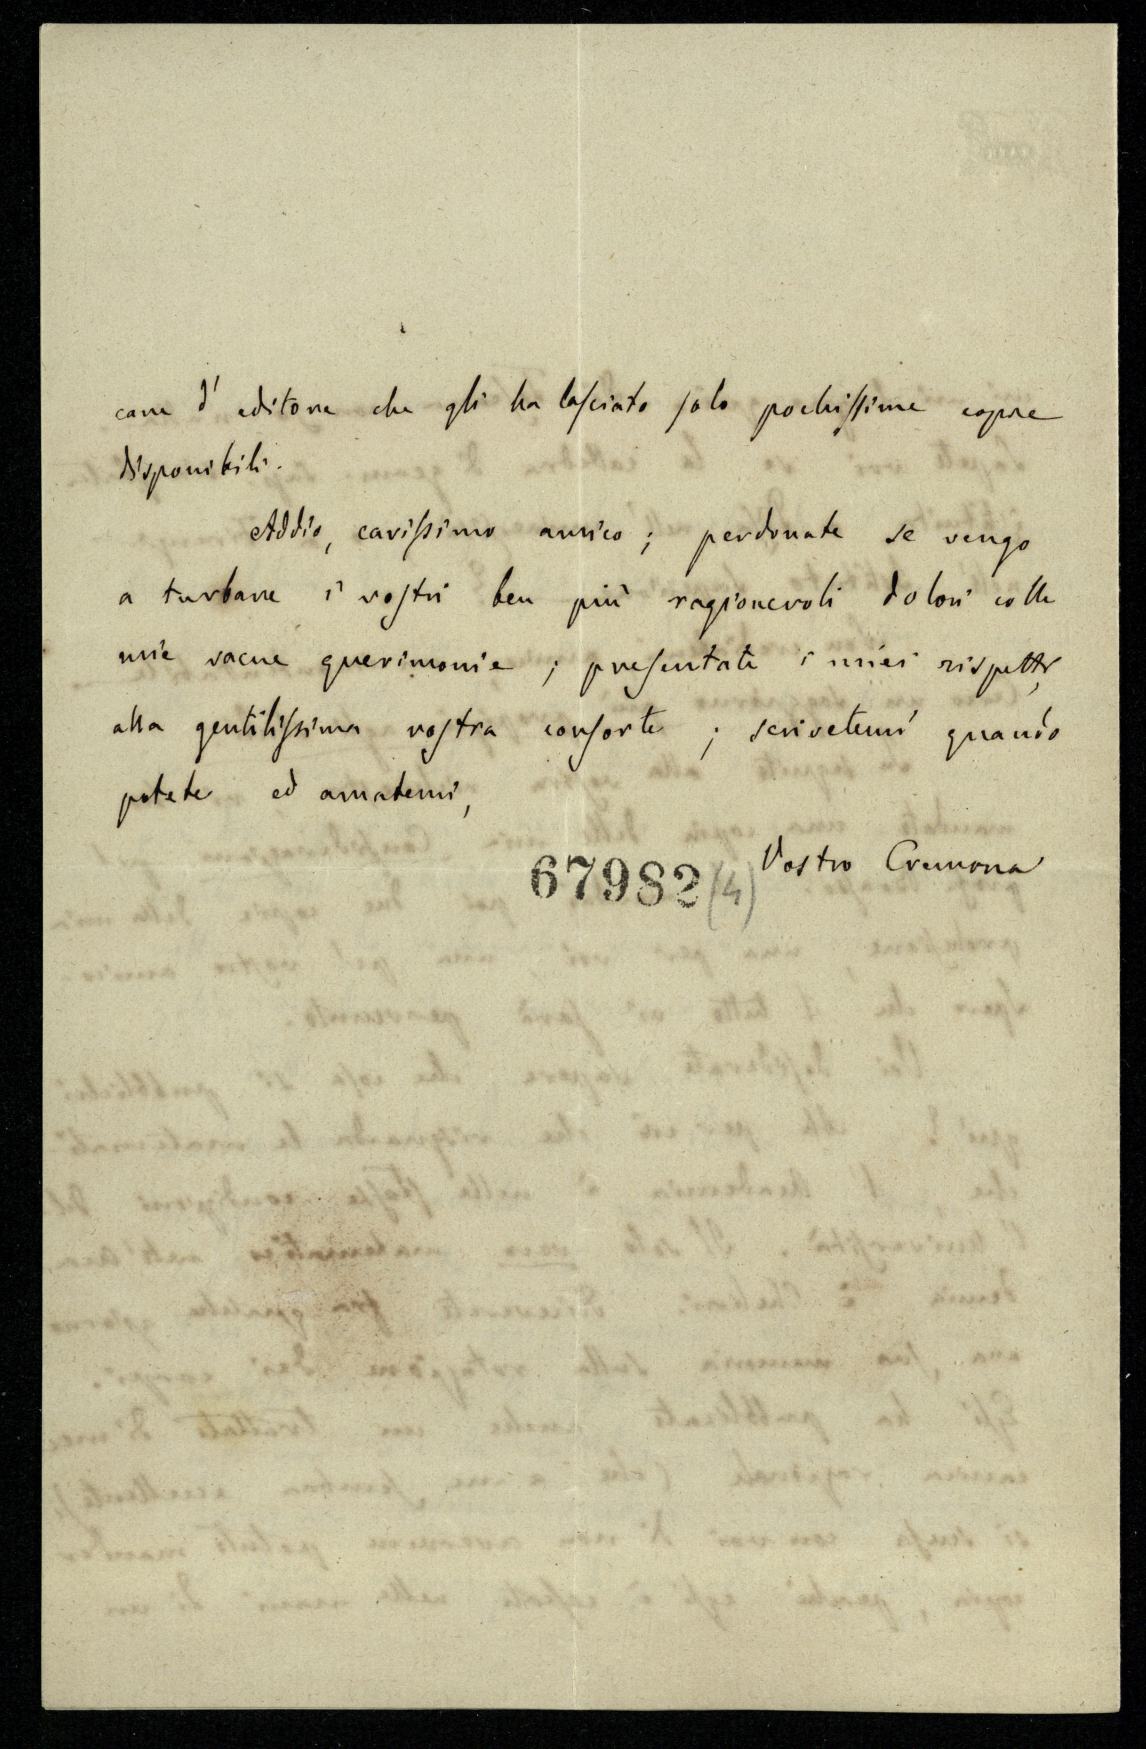 cane d' editore che gli ha lasciato solo pochissime copie
disponibili.
Addio, carissimo amico; perdonate se vengo
a turbare i vostri ben più ragionevoli dolori colle
mie vacue querimonie; presentate i miei rispetti
alla gentilissima vostra consorte; scrivetemi quando
potete ed amatemi,
Vostro Cremona
67982 (4)